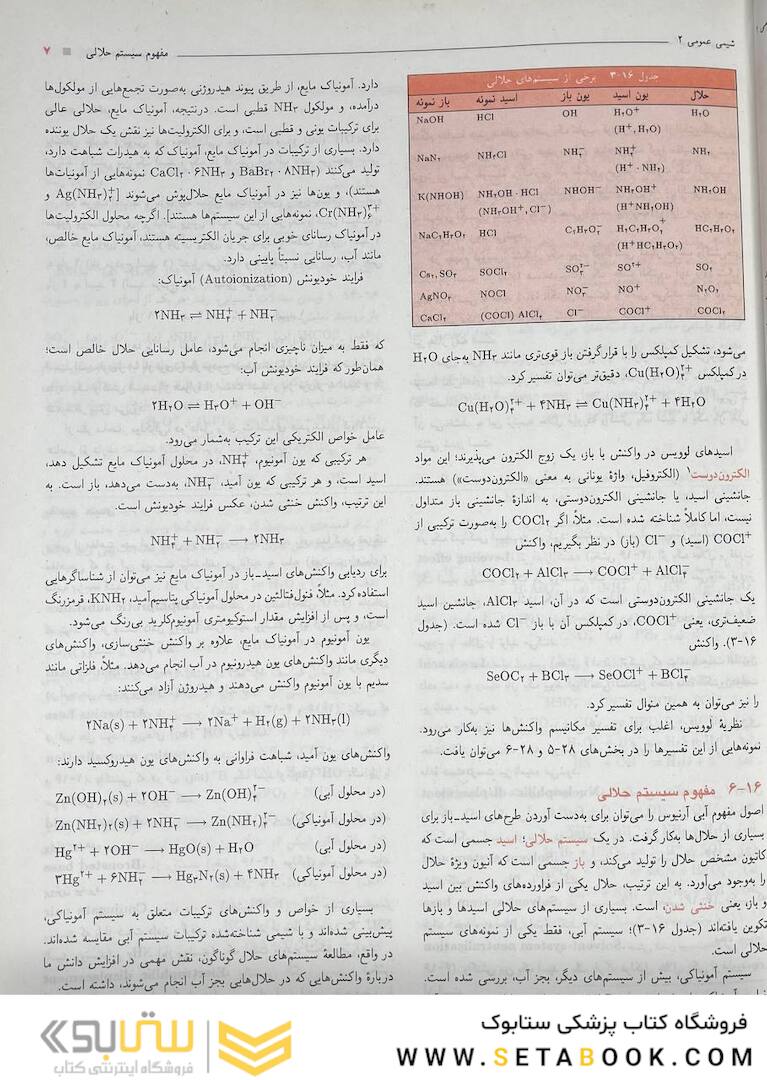 شیمی عمومی ۲
مفهوم سیستم حلالی ۷
جدول ۱۶-۳ برخی از سیستم‌های حلالی
حلال یون اسید یون باز اسید نمونه باز نمونه
H₂O H₃O⁺ OH HCl NaOH
(H⁺, H₂O)
NH₃ NH₄⁺ NH₂⁻ NH₄Cl NaNH₂
(H⁺ · NH₃)
NH₂OH NH₃OH⁺ NHOH⁻ NH₂OH · HCl K(NHOH)
(H⁺NH₂OH) (NH₃OH⁺, Cl⁻)
HCl
SO₂ SO²⁺ SO₃²⁻ SOCl₂ Cs₂, SO₃
N₂O₄ NO⁺ NO₃⁻ NOCl AgNO₃
COCl₂ COCl⁺ Cl⁻ (COCl) AlCl₄ CaCl₂
می‌شود، تشکیل کمپلکس را با قرار گرفتن باز قوی‌تری مانند NH₃ به‌جای H₂O
در کمپلکس Cu(H₂O)₄²⁺، دقیق‌تر می‌توان تفسیر کرد.
Cu(H₂O)₄²⁺ + ۴NH₃ ⇌ Cu(NH₃)₄²⁺ + ۴H₂O
اسیدهای لوویس در واکنش با باز، یک زوج الکترون می‌پذیرند؛ این مواد
الکترون‌دوست¹ (الکتروفیل، واژهٔ یونانی به معنی «الکترون‌دوست») هستند.
جانشینی اسید، یا جانشینی الکترون‌دوستی، به اندازهٔ جانشینی باز متداول
نیست، اما کاملاً شناخته شده است. مثلاً، اگر COCl₂ را به‌صورت ترکیبی از
COCl⁺ (اسید) و Cl⁻ (باز) در نظر بگیریم، واکنش
COCl₂ + AlCl₃ ⟶ COCl⁺ + AlCl₄⁻
یک جانشینی الکترون‌دوستی است که در آن، اسید AlCl₃، جانشین اسید
ضعیف‌تری، یعنی COCl⁺، در کمپلکس آن با باز Cl⁻ شده است. (جدول
۱۶-۳). واکنش
SeOC₂ + BCl₃ ⟶ SeOCl⁺ + BCl₄⁻
را نیز می‌توان به همین منوال تفسیر کرد.
نظریهٔ لوویس، اغلب برای تفسیر مکانیسم واکنش‌ها نیز به‌کار می‌رود.
نمونه‌هایی از این تفسیرها را در بخش‌های ۲۸-۵ و ۲۸-۶ می‌توان یافت.
۱۶-۶ مفهوم سیستم حلالی
اصول مفهوم آبی آرنیوس را می‌توان برای به‌دست آوردن طرح‌های اسید-باز برای
بسیاری از حلال‌ها به‌کار گرفت. در یک سیستم حلالی؛ اسید جسمی است که
کاتیون مشخص حلال را تولید می‌کند، و باز جسمی است که آنیون ویژهٔ حلال
را به‌وجود می‌آورد. به این ترتیب، حلال یکی از فراورده‌های واکنش بین اسید
و باز، یعنی خنثی شدن، است. بسیاری از سیستم‌های حلالی اسیدها و بازها
تکوین یافته‌اند (جدول ۱۶-۳)؛ سیستم آبی، فقط یکی از نمونه‌های سیستم
حلالی است.
سیستم آمونیاکی، بیش از سیستم‌های دیگر، بجز آب، بررسی شده است.
دارد. آمونیاک مایع، از طریق پیوند هیدروژنی به‌صورت تجمع‌هایی از مولکول‌ها
درآمده، و مولکول NH₃ قطبی است. درنتیجه، آمونیاک مایع، حلالی عالی
برای ترکیبات یونی و قطبی است، و برای الکترولیت‌ها نیز نقش یک حلال یوننده
دارد. بسیاری از ترکیبات در آمونیاک مایع، آمونیاک که به هیدرات شباهت دارد،
تولید می‌کنند (BaBr₂ · ۸NH₃ و CaCl₂ · ۶NH₃ نمونه‌هایی از آمونیات‌ها
هستند)، و یون‌ها نیز در آمونیاک مایع حلال‌پوش می‌شوند [Ag(NH₃)₂⁺ و
Cr(NH₃)₆³⁺، نمونه‌هایی از این سیستم‌ها هستند]. اگرچه محلول الکترولیت‌ها
در آمونیاک رسانای خوبی برای جریان الکتریسیته هستند، آمونیاک مایع خالص،
مانند آب، رسانایی نسبتاً پایینی دارد.
فرایند خودیونش (Autoionization) آمونیاک:
۲NH₃ ⇌ NH₄⁺ + NH₂⁻
که فقط به میزان ناچیزی انجام می‌شود، عامل رسانایی حلال خالص است؛
همان‌طور که فرایند خودیونش آب:
۲H₂O ⇌ H₃O⁺ + OH⁻
عامل خواص الکتریکی این ترکیب به‌شمار می‌رود.
هر ترکیبی که یون آمونیوم، NH₄⁺، در محلول آمونیاک مایع تشکیل دهد،
اسید است، و هر ترکیبی که یون آمید، NH₂⁻، به‌دست می‌دهد، باز است. به
این ترتیب، واکنش خنثی شدن، عکس فرایند خودیونش است.
NH₄⁺ + NH₂⁻ ⟶ ۲NH₃
برای ردیابی واکنش‌های اسید-باز در آمونیاک مایع نیز می‌توان از شناساگرهایی
استفاده کرد. مثلاً، فنول‌فتالئین در محلول آمونیاکی پتاسیم‌آمید، KNH₂، قرمزرنگ
است، و پس از افزایش مقدار استوکیومتری آمونیوم‌کلرید بی‌رنگ می‌شود.
یون آمونیوم در آمونیاک مایع، علاوه بر واکنش خنثی‌سازی، واکنش‌های
دیگری مانند واکنش‌های یون هیدرونیوم در آب انجام می‌دهد. مثلاً، فلزاتی مانند
سدیم با یون آمونیوم واکنش می‌دهند و هیدروژن آزاد می‌کنند:
۲Na(s) + ۲NH₄⁺ ⟶ ۲Na⁺ + H₂(g) + ۲NH₃(l)
واکنش‌های یون آمید، شباهت فراوانی به واکنش‌های یون هیدروکسید دارند:
Zn(OH)₂(s) + ۲OH⁻ ⟶ Zn(OH)₄²⁻ (در محلول آبی)
Zn(NH₂)₂(s) + ۲NH₂⁻ ⟶ Zn(NH₂)₄²⁻ (در محلول آمونیاکی)
Hg²⁺ + ۲OH⁻ ⟶ HgO(s) + H₂O (در محلول آبی)
۳Hg²⁺ + ۶NH₂⁻ ⟶ Hg₃N₂(s) + ۴NH₃ (در محلول آمونیاکی)
بسیاری از خواص و واکنش‌های ترکیبات متعلق به سیستم آمونیاکی،
پیش‌بینی شده‌اند و با شیمی شناخته‌شده ترکیبات سیستم آبی مقایسه شده‌اند.
در واقع، مطالعهٔ سیستم‌های حلال گوناگون، نقش مهمی در افزایش دانش ما
دربارهٔ واکنش‌هایی که در حلال‌هایی بجز آب انجام می‌شوند، داشته است.
فروشگاه کتاب پزشکی ستابوک
WWW.SETABOOK.COM
ستابوک
فروشگاه اینترنتی کتاب